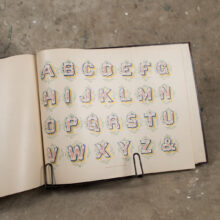 ABCDEFG
HIJKLMN
OPQRSTU
VWXYZ&